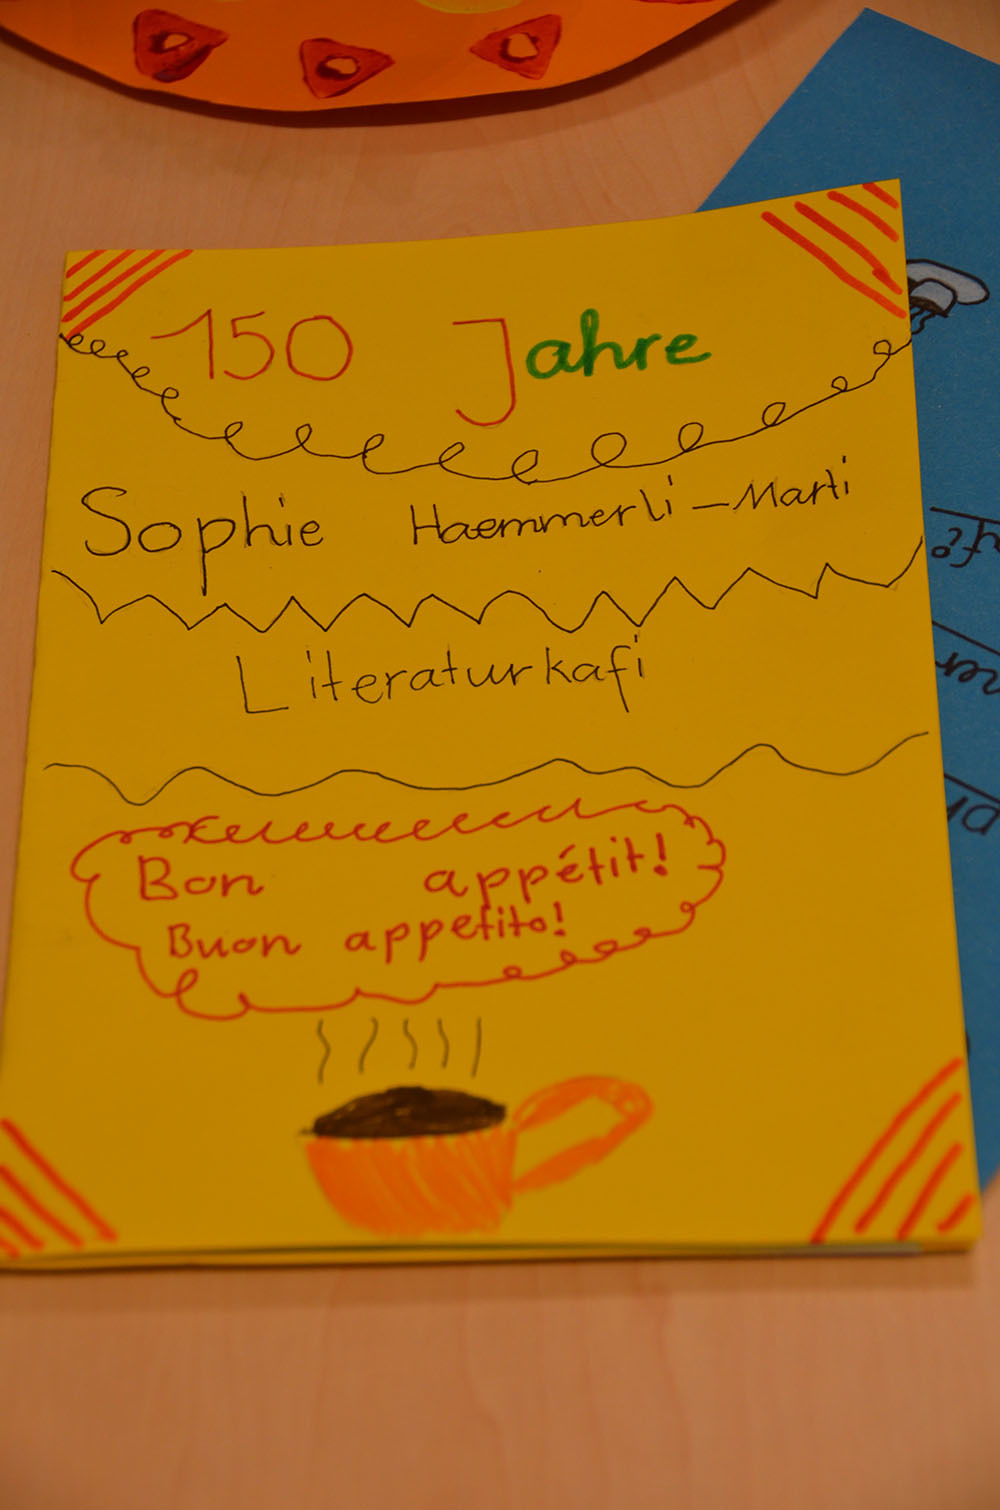 150 Jahre
Sophie Haemmerli-Marti
Literaturkafi
Bon appétit!
Buon appetito!